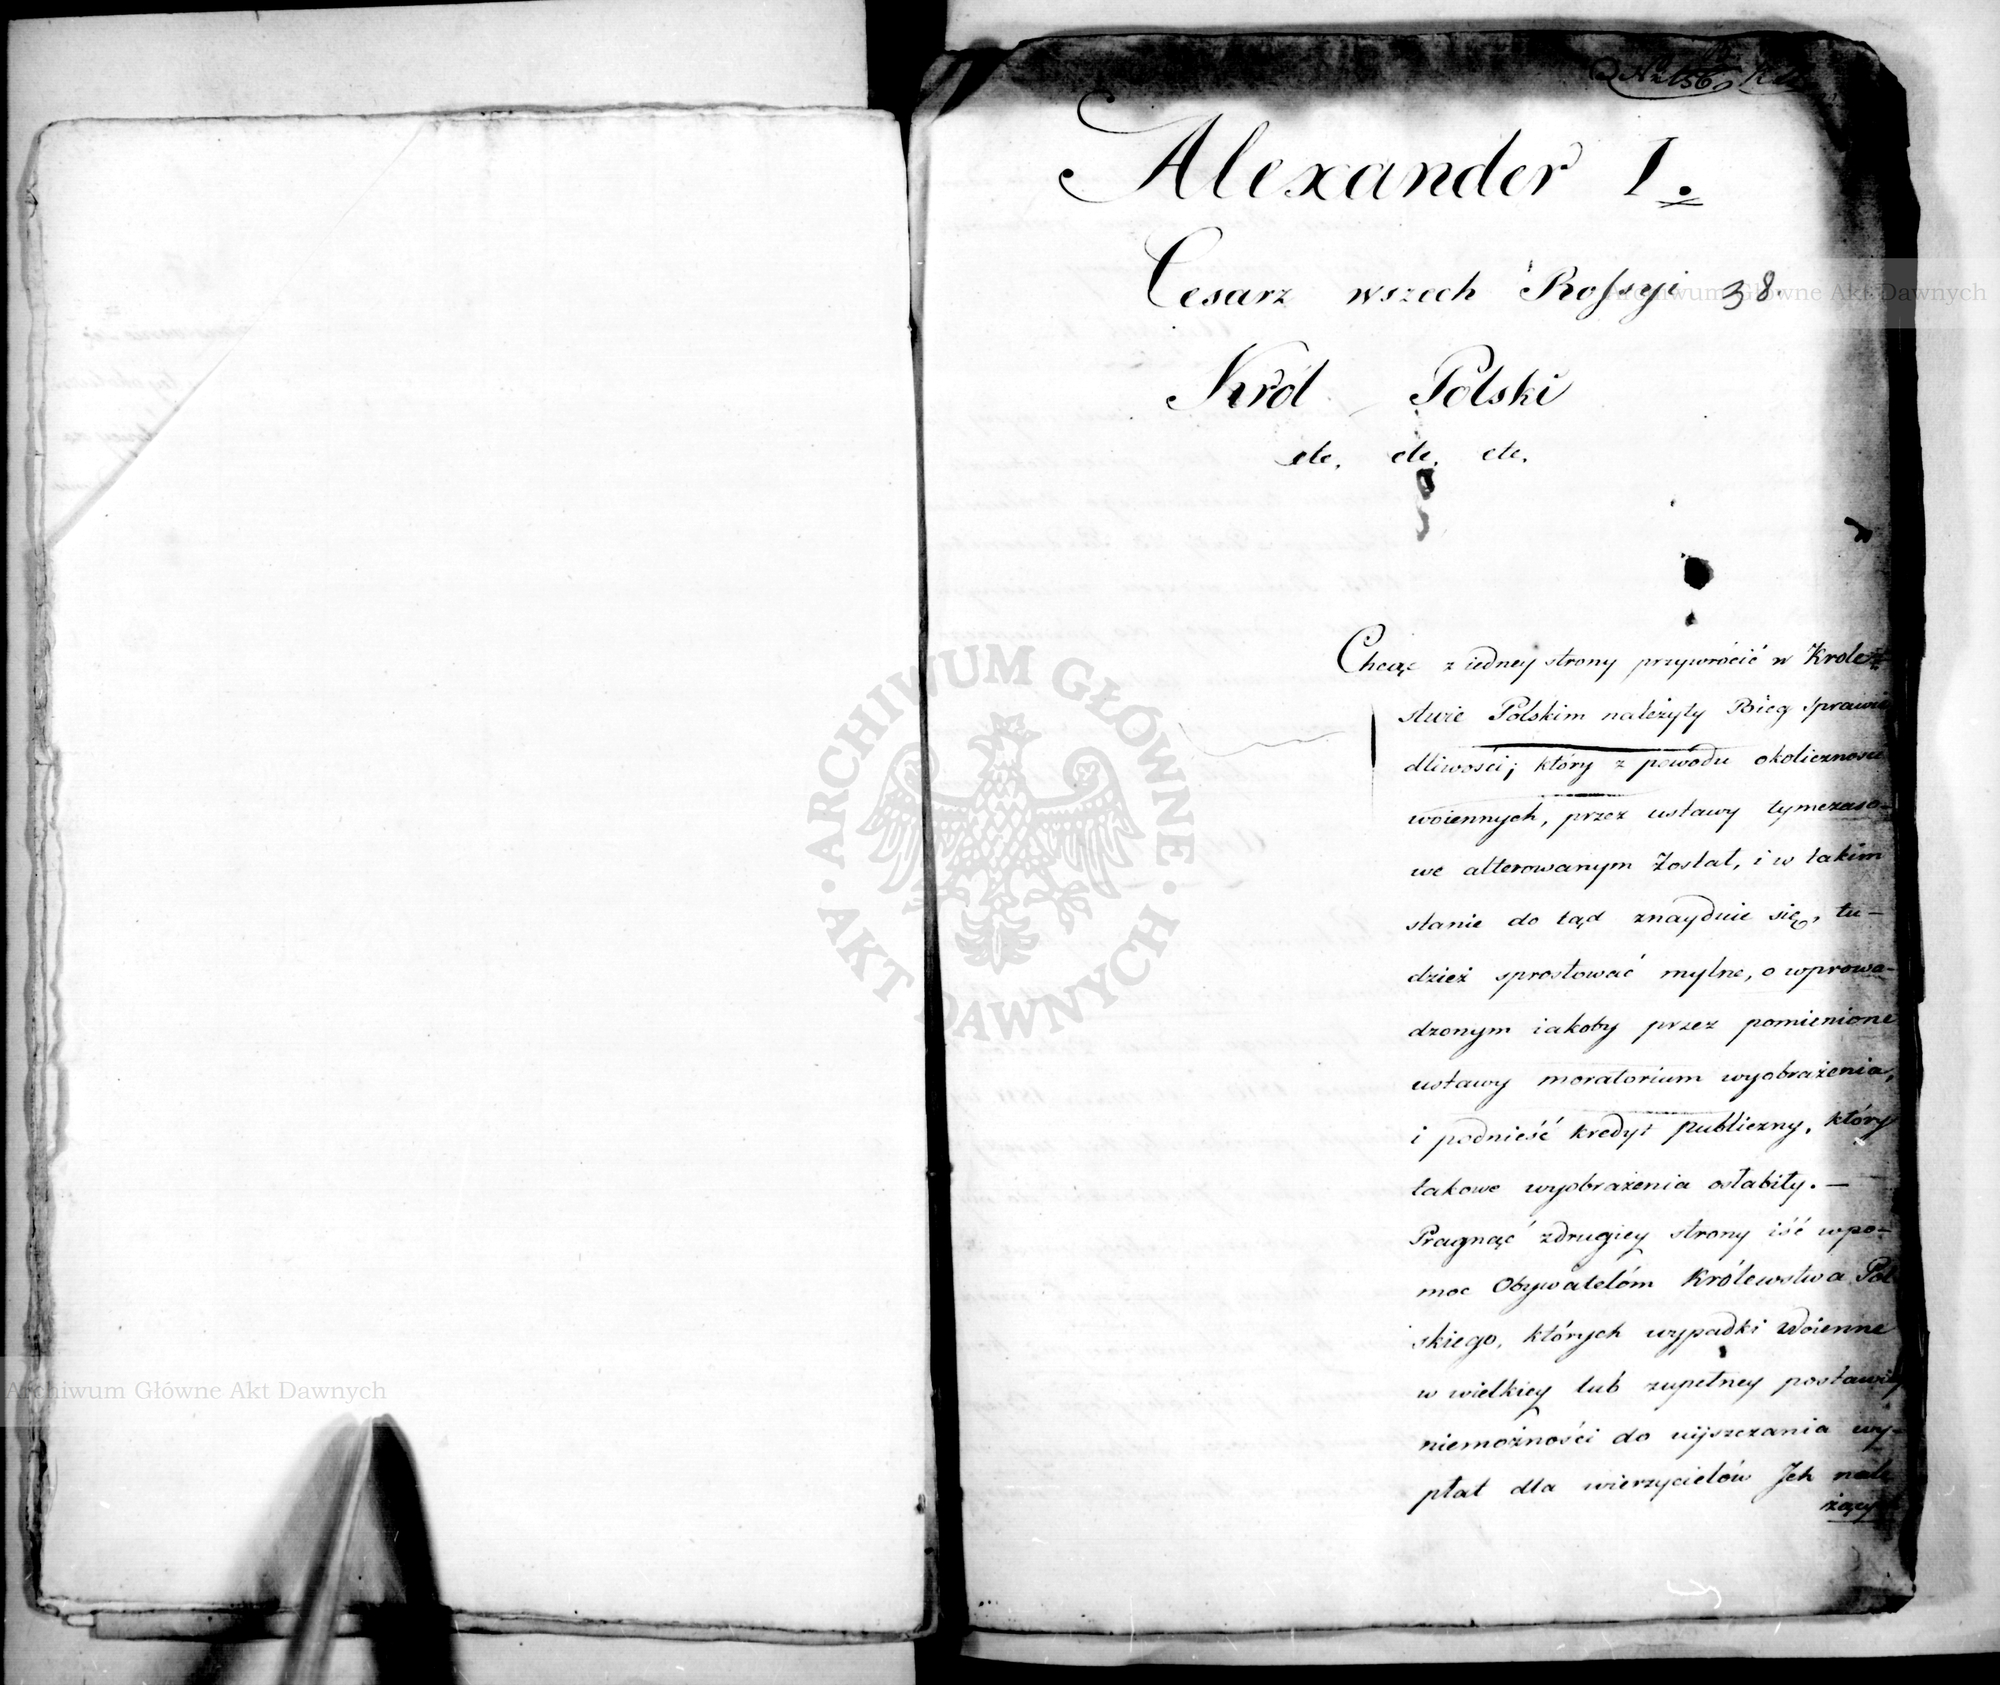 Nº 156
Alexander I.
Cesarz wszech Rossyi 38.
Król Polski
etc. etc. etc.
Chcąc z iedney strony przywrócić w Krole-
stwie Polskim należyty Bieg Sprawie
dliwości; który z powodu okoliczności
woiennych, przez ustawy tymczaso-
we alterowanym Został, i w takim
stanie do tąd znayduie się, tu-
dzież sprostować mylne, o wprowa-
dzonym iakoby przez pomienione
ustawy moratorium wyobrażenia,
i podnieść kredyt publiczny, który
takowe wyobrażenia osłabiły. —
Pragnąc zdrugiey strony iść wpo-
moc Obywatelóm Królewstwa Pol
skiego, których wypadki Woienne
w wielkiey lub zupełney postawiły
niemożności do uijszczania wy-
płat dla wierzycielów Jch nale
żących
ARCHIWUM GŁÓWNE
AKT DAWNYCH
Archiwum Główne Akt Dawnych
Archiwum Główne Akt Dawnych